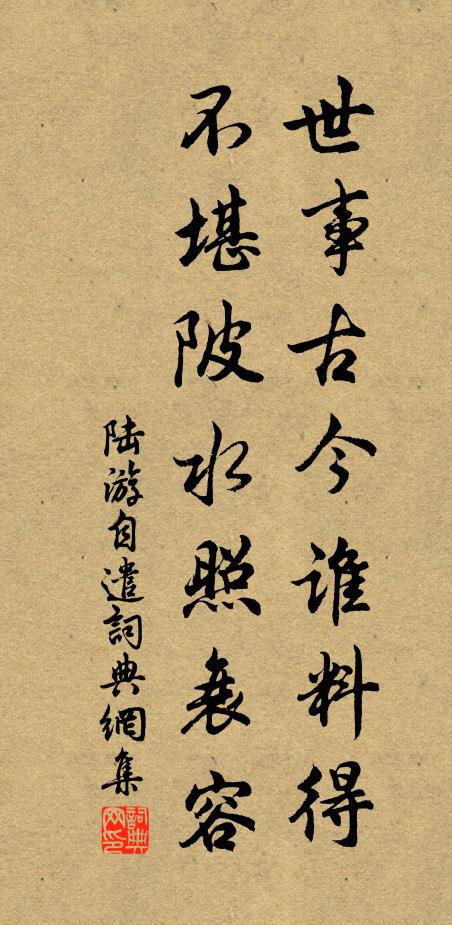 世事古今谁料得
不堪陂水照衰容
陆游自遣詞典網集
詞典网印